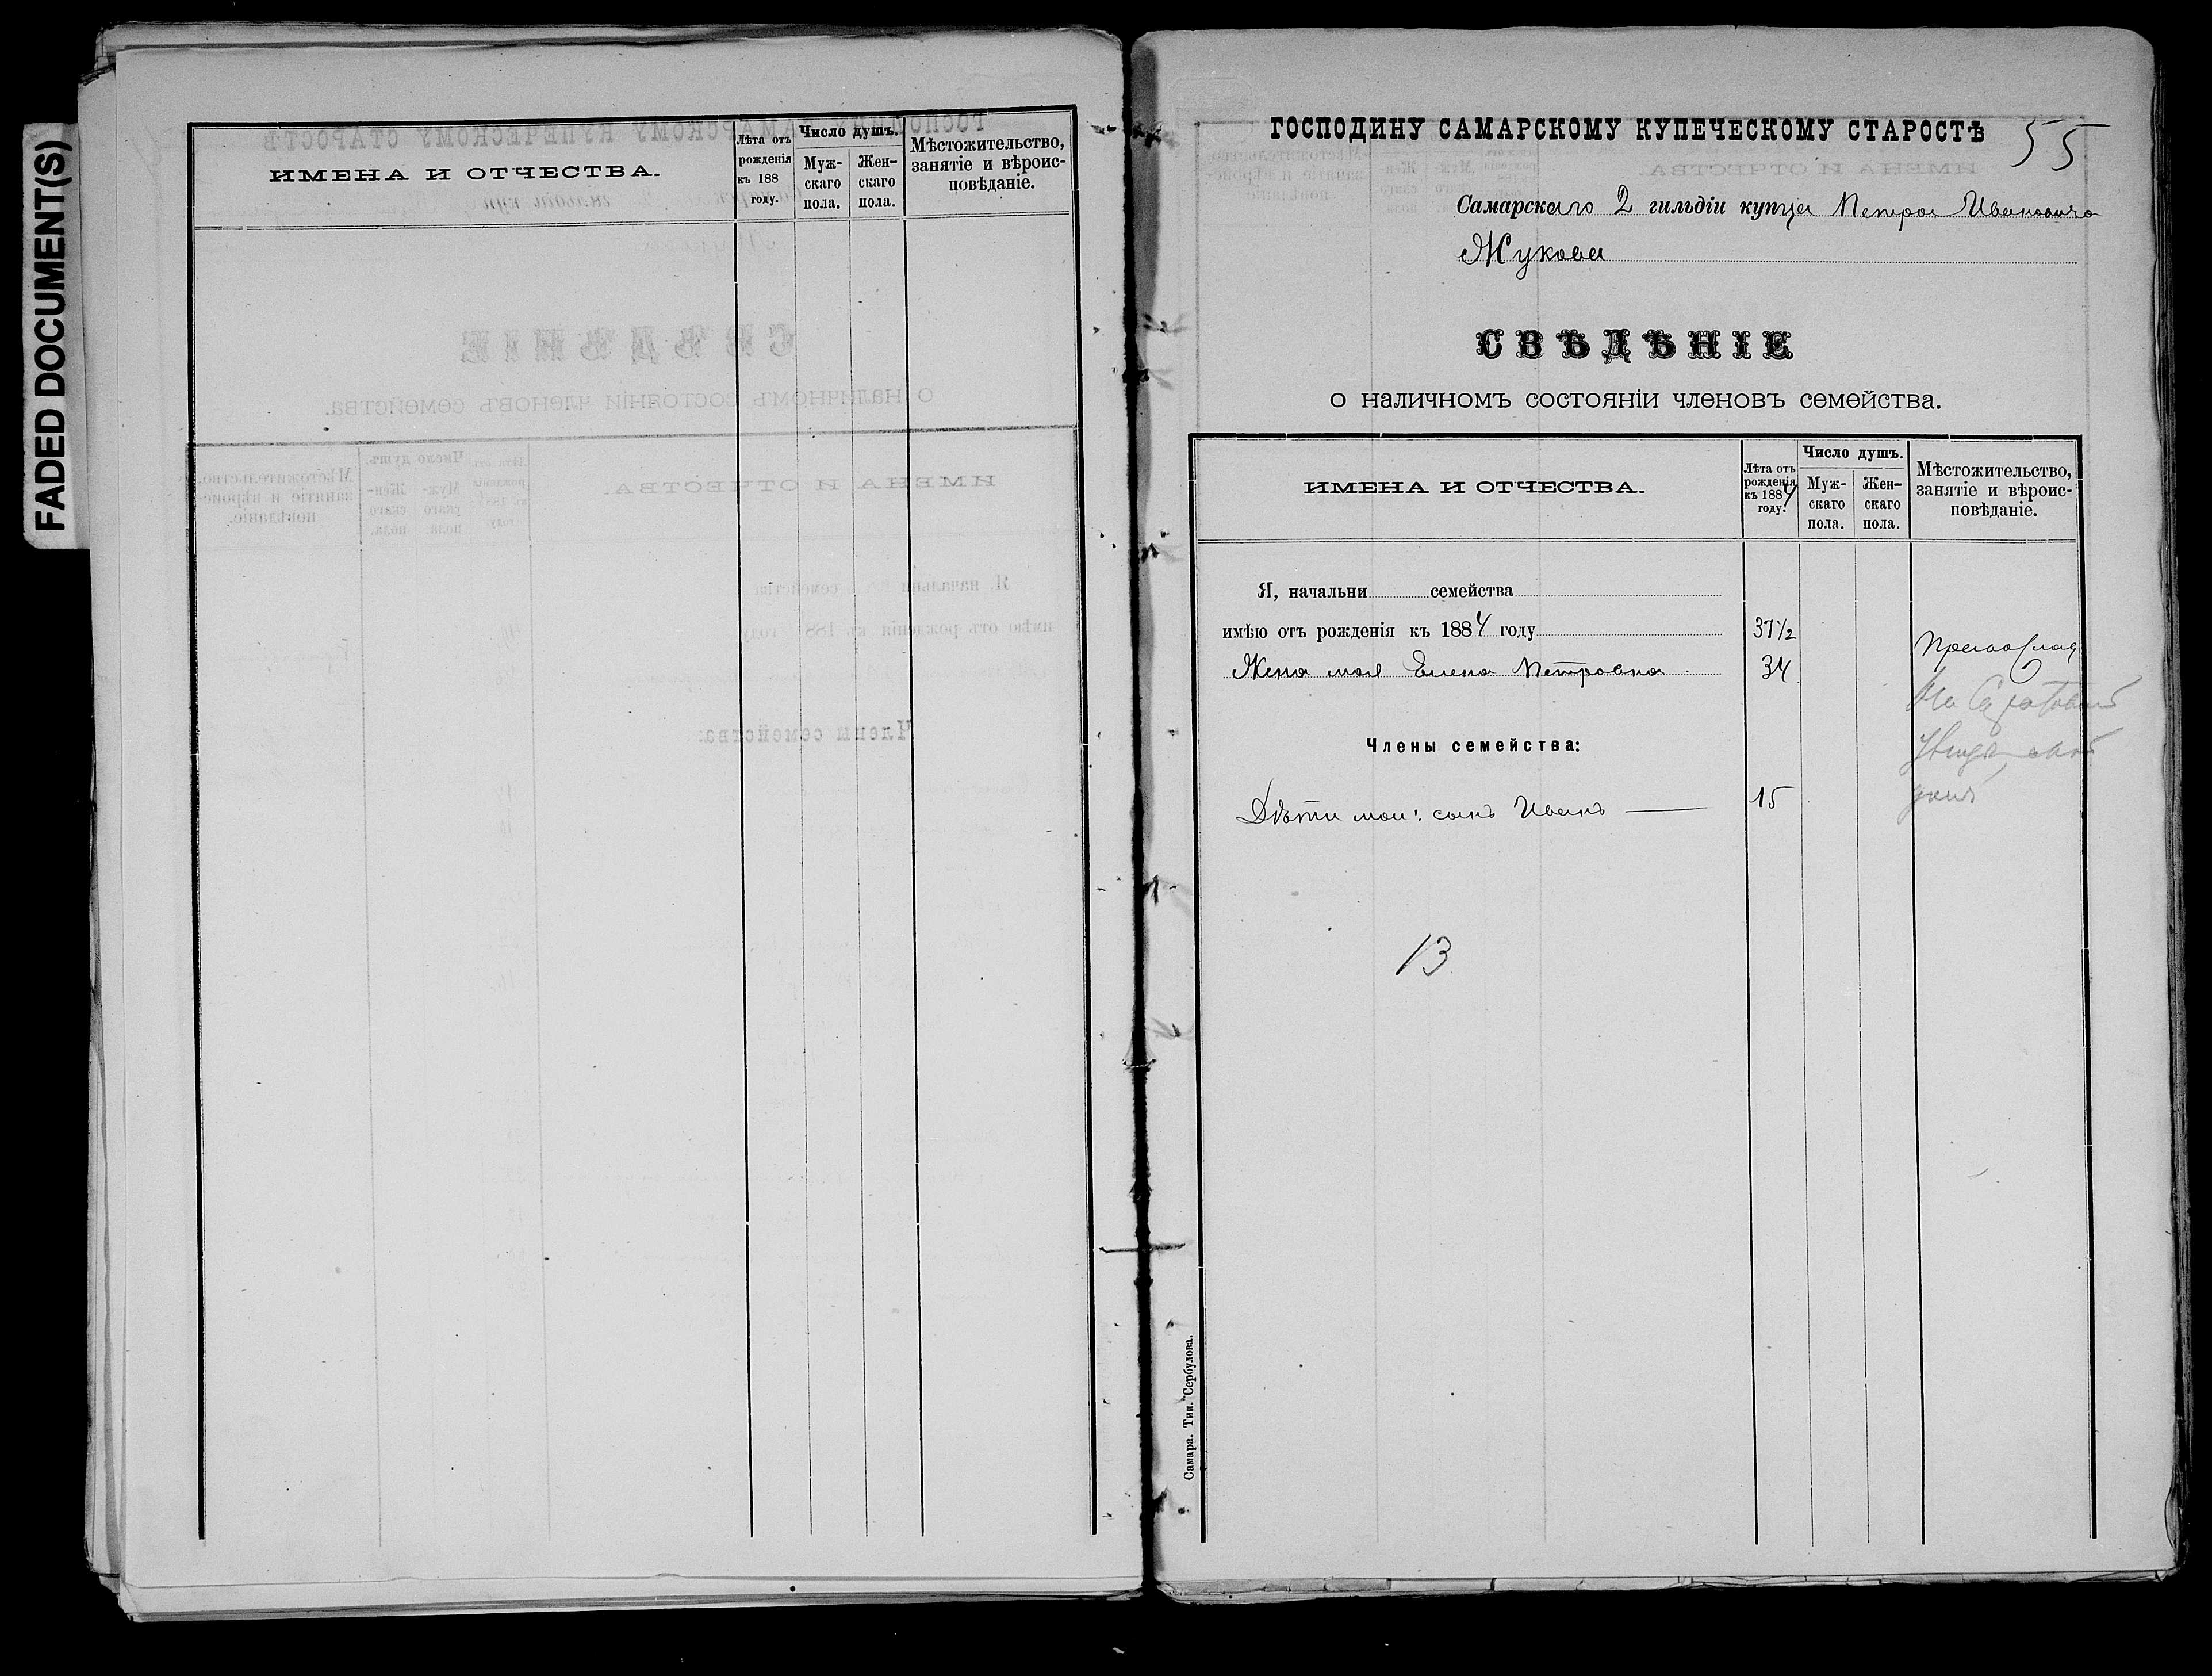 FADED DOCUMENT(S)
ИМЕНА И ОТЧЕСТВА.
Лѣта отъ
рожденія
къ 188
году.
Число душъ.
Муж-
скаго
пола.
Жен-
скаго
пола.
Мѣстожительство,
занятіе и вѣроис-
повѣданіе.
ГОСПОДИНУ САМАРСКОМУ КУПЕЧЕСКОМУ СТАРОСТѢ
55
Самарскаго 2 гильдіи купца Петра Ивановича
Жукова
СВѢДѢНІЕ
о наличномъ состояніи членовъ семейства.
ИМЕНА И ОТЧЕСТВА.
Лѣта отъ
рожденія
къ 1884
году.
Число душъ.
Муж-
скаго
пола.
Жен-
скаго
пола.
Мѣстожительство,
занятіе и вѣроис-
повѣданіе.
Я, начальни семейства
имѣю отъ рожденія къ 1884 году 37½
Жена моя Елена Петровна 34
Православ
На
Члены семейства:
Дѣти мои: сынъ Иванъ — 15
13
Самара. Тип. Сербулова.